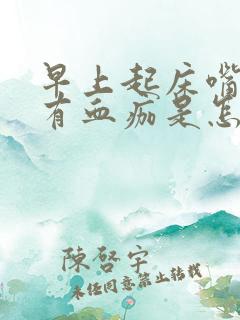 早上起床嘴
有血痂是怎
陳啓宇
未经同意禁止转载